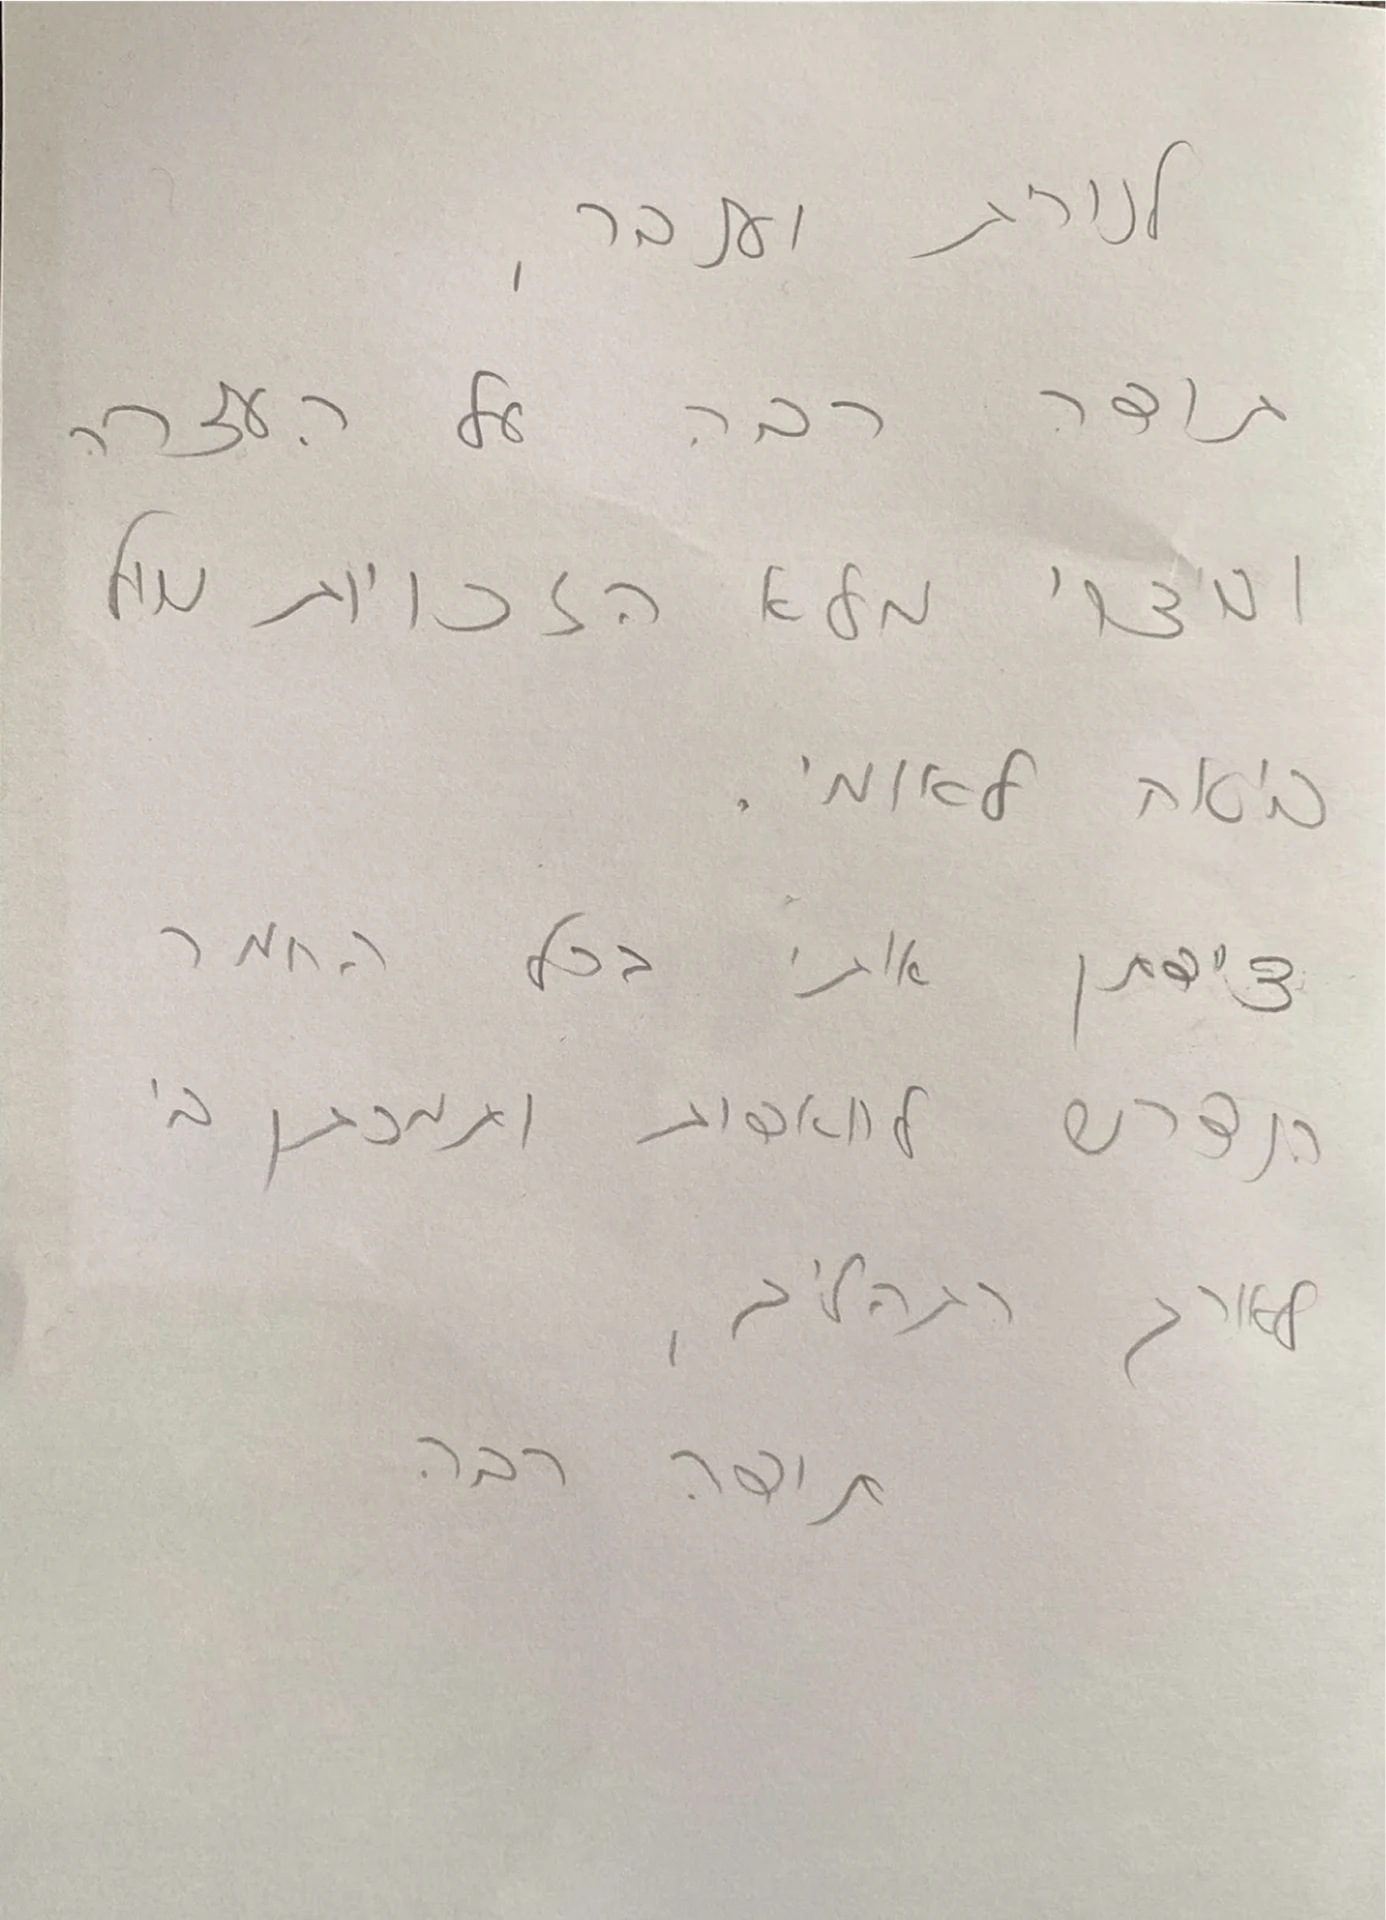 לנורית וענבר,
תודה רבה על העזרה
ומיצוי מלא הזכויות מול
ביטוח לאומי.
ציידתן אותי בכל החומר
הנדרש לזכאות ותמכתן בי
לאורך התהליך,
תודה רבה